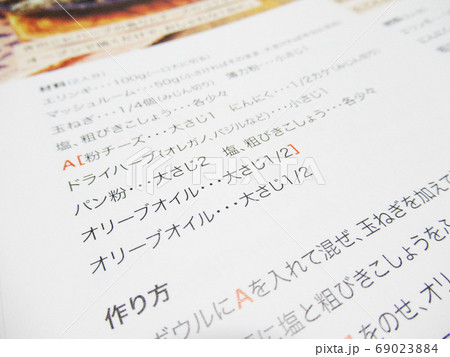 材料(2人分)
エリンギ・・・100g(一口大に切る)
マッシュルーム・・・50g(小さければそのまま、大きければ
玉ねぎ・・・1/4個(みじん切り) 薄力粉・・・小さじ1
塩、粗びきこしょう・・・各少々
A[粉チーズ・・・大さじ1 にんにく・・・1/2カケ(みじん切り)
ドライハーブ(オレガノ、バジルなど)・・・小さじ1
パン粉・・・大さじ2 塩、粗びきこしょう・・・各少々
オリーブオイル・・・大さじ1/2]
オリーブオイル・・・大さじ1/2
作り方
ボウルにAを入れて混ぜ、玉ねぎを加えて
に塩と粗びきこしょうをふ
Aをのせ、オリ
pixta.jp - 69023884